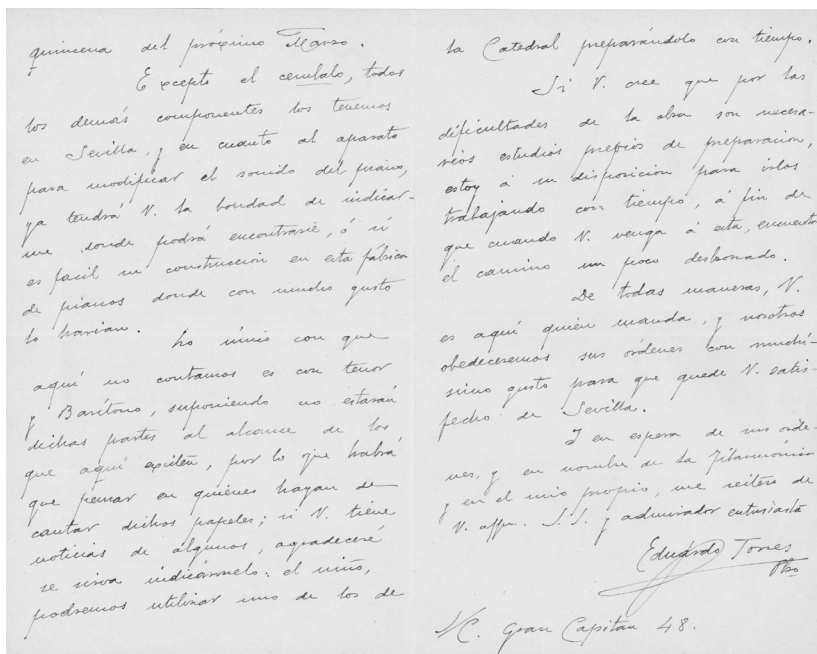 quincena del próximo Marzo.
Excepto el cémbalo, todos
los demás componentes los tenemos
en Sevilla, y en cuanto al aparato
para modificar el sonido del piano,
ya tendrá V. la bondad de indicar-
me donde podrá encontrarse, ó si
es facil su construccion en esta fábrica
de pianos donde con mucho gusto
lo harian.
Lo único con que
aquí no contamos es con tenor
y Barítono, suponiendo no estarán
dichas partes al alcance de los
que aquí existen, por lo que habrá
que pensar en quiénes hayan de
cantar dichos papeles; si V. tiene
noticias de algunos, agradeceré
se sirva indicármelo: el niño,
podremos utilizar uno de los de
la Catedral preparándolo con tiempo.
Si V. cree que por las
dificultades de la obra son necesa-
rios estudios previos de preparacion,
estoy á su disposicion para irlos
trabajando con tiempo, á fin de
que cuando V. venga á esta, encuentre
el camino un poco desbrozado.
De todas maneras, V.
es aquí quién manda, y nosotros
obedeceremos sus órdenes con muchí-
simo gusto para que quede V. satis-
fecho de Sevilla.
Y en espera de sus órde-
nes, y en nombre de la Filarmónica
y en el mio propio, me reitero de
V. affmo. S.S. y admirador entusiasta
Eduardo Torres
Pbro
S/C. Gran Capitan 48.